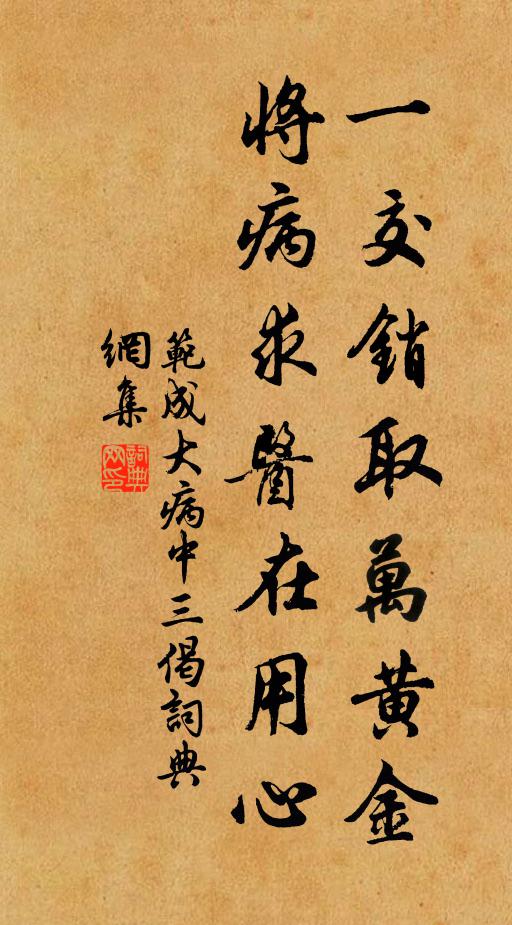 一交銷取萬黄金
將病求醫在用心
範成大病中三偈詞典
網集
詞典
网印